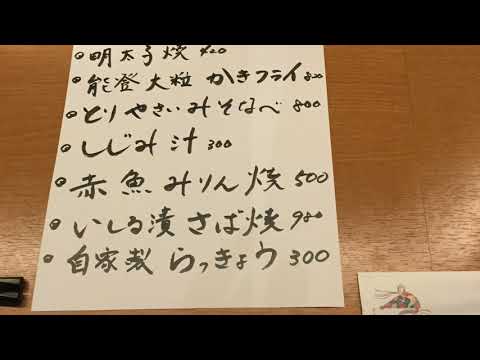 明太子焼 420
能登大粒 かきフライ 820
とりやさいみそなべ 800
しじみ汁 300
赤魚みりん焼 500
いしる漬さば焼 980
自家製 らっきょう 300